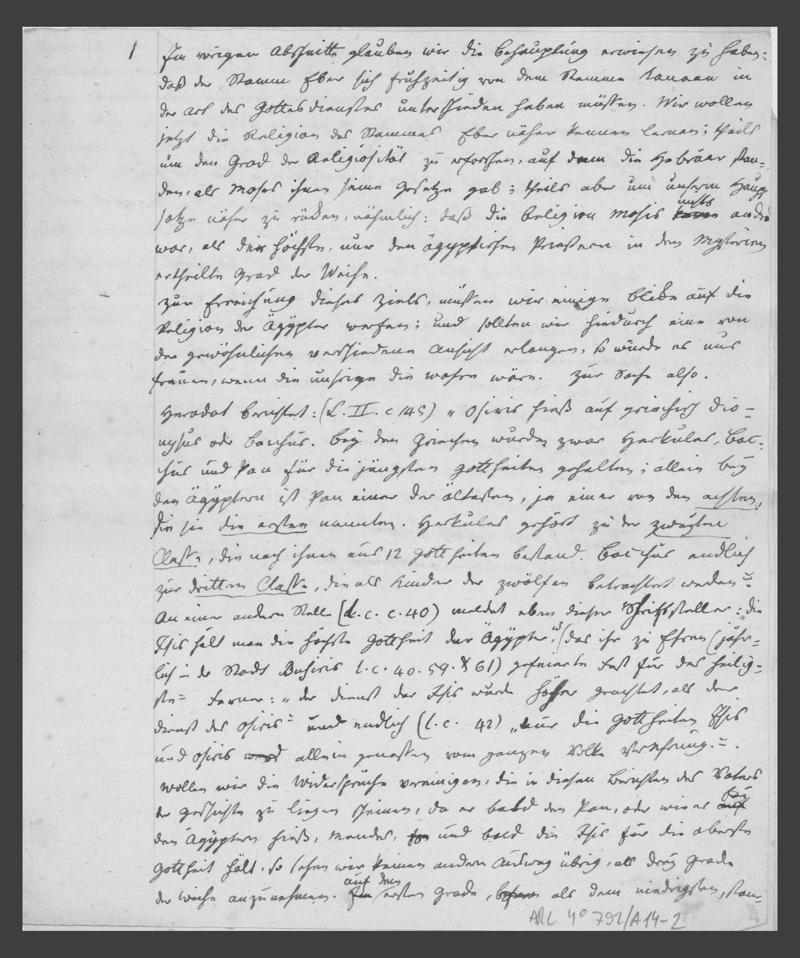 1
Im vorigen Abschnitte glauben wir die Behauptung erwiesen zu haben:
daß der Stamm Eber sich frühzeitig von dem Stamme Kanaan in
der Art des Gottesdienstes unterschieden haben müssen. Wir wollen
jetzt die Religion des Stammes Eber näher kennen lernen; theils
um den Grad der Religiosität zu erforschen, auf dem die Hebräer stan-
den, als Moses ihnen seine Gesetze gab; theils aber um unserm Haupt
satze näher zu rücken, nähmlich: daß die Religion Mosis nichts anders
war, als der höchste, nur den ägyptischen Priestern in den Mysterien
ertheilte Grad der Weihe.
Zur Erreichung dieses Ziels, müssen wir einige Blicke auf die
Religion der Ägypter werfen; und sollten wir hiedurch eine von
der gewöhnlichen verschiedene Ansicht erlangen, so würde es uns
freuen, wenn die unsrige die wahre wäre. Zur Sache also.
Herodot berichtet: (L. II. c 145) „Osiris hieß auf griechisch Dio-
nysus oder Bacchus. Bey den Griechen wurden zwar Herkules, Bac-
chus und Pan für die jüngsten Gottheiten gehalten; allein bey
den Ägyptern ist Pan einer der ältesten, ja einer von den achten,
die sie die ersten nannten. Herkules gehört zu der zweyten
Classe, die nach ihnen aus 12 Gottheiten bestand. Bacchus endlich
zur dritten Classe, die als Kinder der zwölfen betrachtet werden"
An einer andern Stelle (L. c. c. 40) meldet eben dieser Schriftsteller: „die
Isis hält man die höchste Gottheit der Ägypter" (das ihr zu Ehren (jähr-
lich in der Stadt Busiris l. c. 40. 59. & 61) gefeierte Fest für das heilig-
ste" Ferner: „der Dienst der Isis wurde höher geachtet, als der
Dienst des Osiris" und endlich (l. c. 42) „nur die Gottheiten Isis
und Osiris allein genossen vom ganzen Volke Verehrung."
Wollen wir die Widersprüche vereinigen, die in diesen Berichten des Vaters
der Geschichte zu liegen scheinen, da er bald den Pan, oder wie er bey
den Ägyptern hieß, Mendes, und bald die Isis für die oberste
Gottheit hält, so sehen wir keinen andern Ausweg übrig, als drey Grade
der Weihe anzunehmen. auf dem ersten Grade, als dem niedrigsten, stan-
ARC 4° 792/A14-2